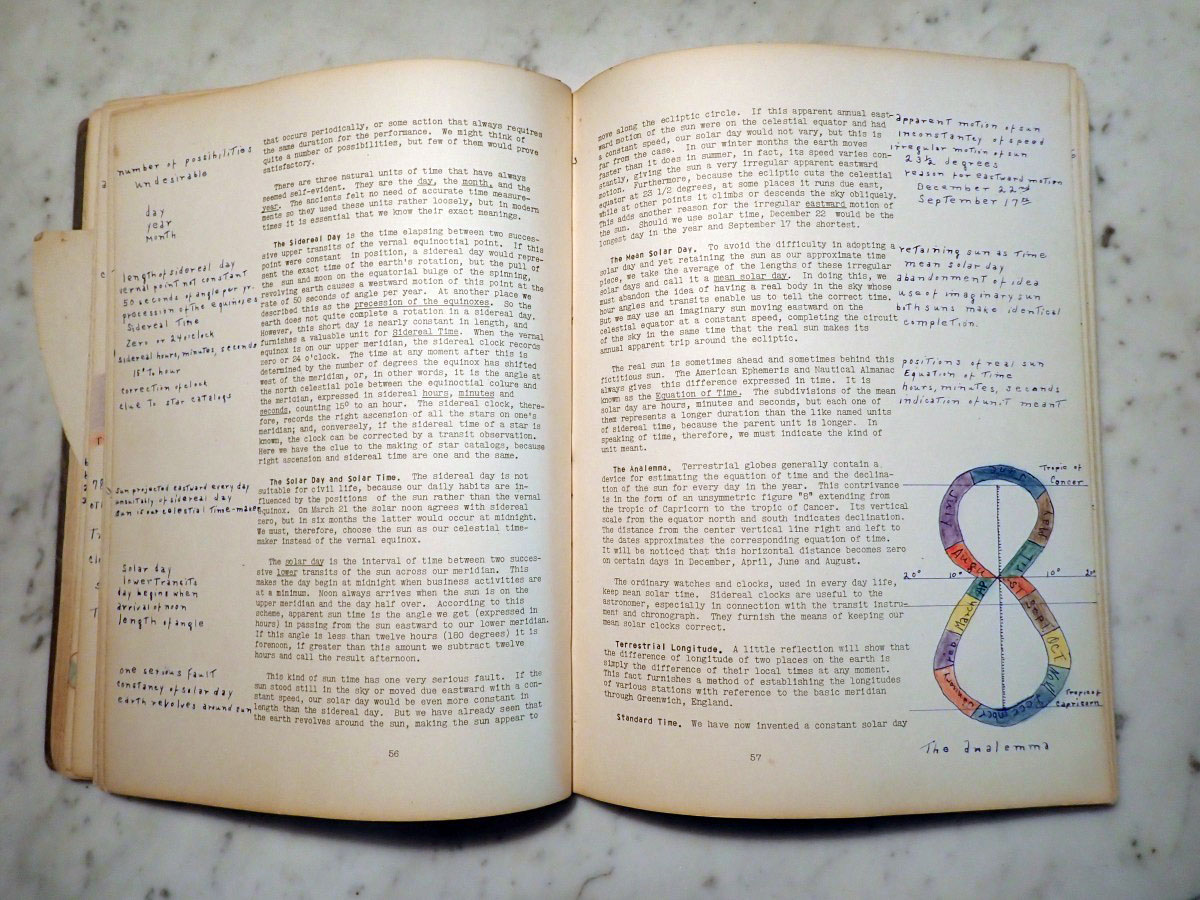 that occurs periodically, or some action that always requires
the same duration for the performance. We might think of
quite a number of possibilities, but few of them would prove
satisfactory.
number of possibilities
undesirable
There are three natural units of time that have always
seemed self-evident. They are the day, the month, and the
year. The ancients felt no need of accurate time measure-
ments so they used these units rather loosely, but in modern
times it is essential that we know their exact meanings.
day
year
month
The Sidereal Day is the time elapsing between two succes-
sive upper transits of the vernal equinoctial point. If this
point were constant in position, a sidereal day would repre-
sent the exact time of the earth's rotation, but the pull of
the sun and moon on the equatorial bulge of the spinning,
revolving earth causes a westward motion of this point at the
rate of 50 seconds of angle per year. At another place we
described this as the precession of the equinoxes. So the
earth does not quite complete a rotation in a sidereal day.
However, this short day is nearly constant in length, and
furnishes a valuable unit for Sidereal Time. When the vernal
equinox is on our upper meridian, the sidereal clock records
zero or 24 o'clock. The time at any moment after this is
determined by the number of degrees the equinox has shifted
west of the meridian, or, in other words, it is the angle at
the north celestial pole between the equinoctial colure and
the meridian, expressed in sidereal hours, minutes and
seconds, counting 15° to an hour. The sidereal clock, there-
fore, records the right ascension of all the stars on one's
meridian; and, conversely, if the sidereal time of a star is
known, the clock can be corrected by a transit observation.
Here we have the clue to the making of star catalogs, because
right ascension and sidereal time are one and the same.
length of sidereal day
vernal point not constant
50 seconds of angle per yr.
precession of the equinoxes
Sidereal Time
Zero or 24 o'clock
sidereal hours, minutes, seconds
15° to hour
correction of clock
clue to star catalogs
The Solar Day and Solar Time. The sidereal day is not
suitable for civil life, because our daily habits are in-
fluenced by the positions of the sun rather than the vernal
equinox. On March 21 the solar noon agrees with sidereal
zero, but in six months the latter would occur at midnight.
We must, therefore, choose the sun as our celestial time-
maker instead of the vernal equinox.
sun projected eastward every day
unsuitally of sidereal day
sun is our celestial time-maker
The solar day is the interval of time between two succes-
sive lower transits of the sun across our meridian. This
makes the day begin at midnight when business activities are
at a minimum. Noon always arrives when the sun is on the
upper meridian and the day half over. According to this
scheme, apparent sun time is the angle we get (expressed in
hours) in passing from the sun eastward to our lower meridian.
If this angle is less than twelve hours (180 degrees) it is
forenoon, if greater than this amount we subtract twelve
hours and call the result afternoon.
Solar day
lower Transits
day begins when
arrival of noon
length of angle
This kind of sun time has one very serious fault. If the
sun stood still in the sky or moved due eastward with a con-
stant speed, our solar day would be even more constant in
length than the sidereal day. But we have already seen that
the earth revolves around the sun, making the sun appear to
one serious fault
constancy of solar day
earth revolves around sun
56
move along the ecliptic circle. If this apparent annual east-
ward motion of the sun were on the celestial equator and had
a constant speed, our solar day would not vary, but this is
far from the case. In our winter months the earth moves
faster than it does in summer, in fact, its speed varies con-
stantly, giving the sun a very irregular apparent eastward
motion. Furthermore, because the ecliptic cuts the celestial
equator at 23 1/2 degrees, at some places it runs due east,
while at other points it climbs or descends the sky obliquely.
This adds another reason for the irregular eastward motion of
the sun. Should we use solar time, December 22 would be the
longest day in the year and September 17 the shortest.
apparent motion of sun
inconstantcy of speed
irregular motion of sun
23½ degrees
reason for eastward motion
December 22nd
September 17th
The Mean Solar Day. To avoid the difficulty in adopting a
solar day and yet retaining the sun as our approximate time
piece, we take the average of the lengths of these irregular
solar days and call it a mean solar day. In doing this, we
must abandon the idea of having a real body in the sky whose
hour angles and transits enable us to tell the correct time.
But we may use an imaginary sun moving eastward on the
celestial equator at a constant speed, completing the circuit
of the sky in the same time that the real sun makes its
annual apparent trip around the ecliptic.
retaining sun as Time
mean solar day
abandonment of idea
use of imaginary sun
both suns make identical
completion.
The real sun is sometimes ahead and sometimes behind this
fictitious sun. The American Ephemeris and Nautical Almanac
always gives this difference expressed in time. It is
known as the Equation of Time. The subdivisions of the mean
solar day are hours, minutes and seconds, but each one of
them represents a longer duration than the like named units
of sidereal time, because the parent unit is longer. In
speaking of time, therefore, we must indicate the kind of
unit meant.
positions of real sun
Equation of Time
hours, minutes, seconds
indication of unit meant
The Analemma. Terrestrial globes generally contain a
device for estimating the equation of time and the declina-
tion of the sun for every day in the year. This contrivance
is in the form of an unsymmetric figure "8" extending from
the tropic of Capricorn to the tropic of Cancer. Its vertical
scale from the equator north and south indicates declination.
The distance from the center vertical line right and left to
the dates approximates the corresponding equation of time.
It will be noticed that this horizontal distance becomes zero
on certain days in December, April, June and August.
The ordinary watches and clocks, used in every day life,
keep mean solar time. Sidereal clocks are useful to the
astronomer, especially in connection with the transit instru-
ment and chronograph. They furnish the means of keeping our
mean solar clocks correct.
Terrestrial Longitude. A little reflection will show that
the difference of longitude of two places on the earth is
simply the difference of their local times at any moment.
This fact furnishes a method of establishing the longitudes
of various stations with reference to the basic meridian
through Greenwich, England.
Standard Time. We have now invented a constant solar day
Tropic of
Cancer
June
July
May
Augu
ril
20° 10° 10° 2
AP
ST
March
Sept
OCT
Feb
Nov
January
December
Tropic of
Capricorn
The Analemma
57